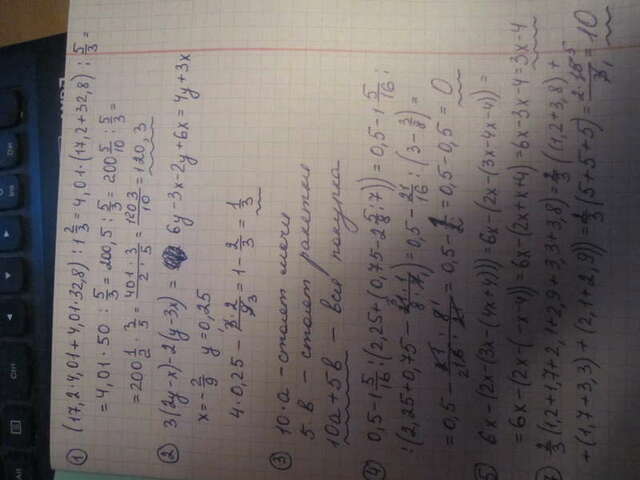 ① (17,2·4,01+4,01·32,8) : 1 2/3 = 4,01·(17,2+32,8) : 5/3 =
= 4,01·50 : 5/3 = 200,5 : 5/3 = 200 5/10 : 5/3 =
= 200 1/2 · 3/5 = 401·3/2·5 = 1203/10 = 120,3
② 3(2y-x)-2(y-3x) = 6y-3x-2y+6x = 4y+3x
x=-2/9 y=0,25
4·0,25 - 3·2/9 3 = 1 - 2/3 = 1/3
③ 10·a - стоят мячи
5·в - стоят ракетки
10a+5в - вся покупка
④ 0,5-1 5/16 : (2,25+(0,75-2 5/8 : 7)) = 0,5-1 5/16 :
: (2,25+0,75 - 21/8 · 1/7) = 0,5 - 21/16 : (3 - 3/8) =
= 0,5 - 21·8/16·21 = 0,5 - 1/2 = 0,5-0,5 = 0
⑤ 6x-(2x-(3x-(4x+4))) = 6x-(2x-(3x-4x-4)) =
= 6x-(2x-(-x-4)) = 6x-(2x+x+4) = 6x-3x-4 = 3x-4
2/3 (1,2+1,7+2,1+2,9+3,3+3,8) = 2/3 ((1,2+3,8)+
+(1,7+3,3)+(2,1+2,9)) = 2/3 (5+5+5) = 2·15 5/3 1 = 10